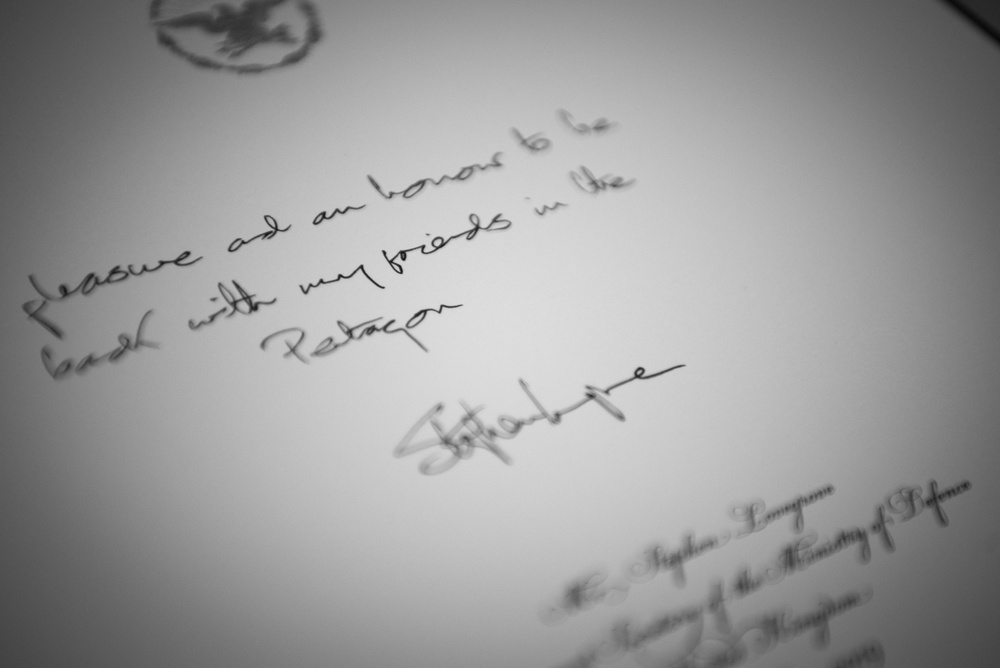 pleasure and an honour to be
back with my friends in the
Pentagon
Stephen Lovegrove
Mr. Stephen Lovegrove
Secretary of the Ministry of Defence
Kingdom